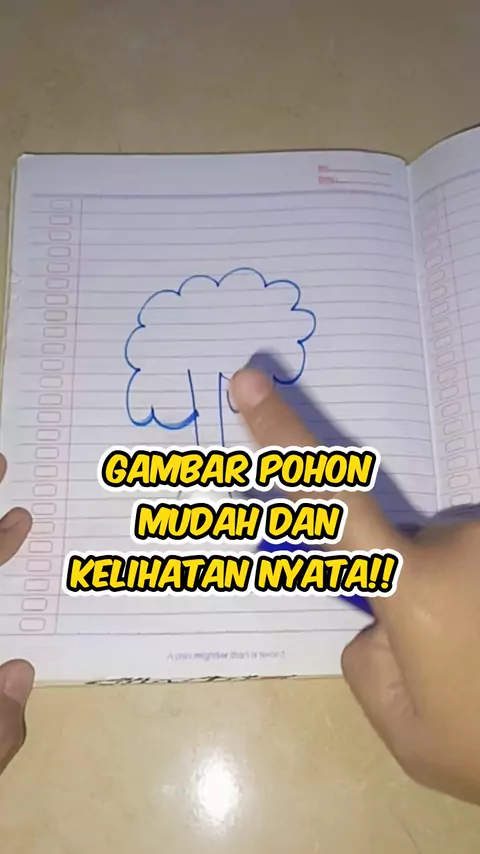 No.
Date
GAMBAR POHON
MUDAH DAN
KELIHATAN NYATA!!
A pen mightier than a sword